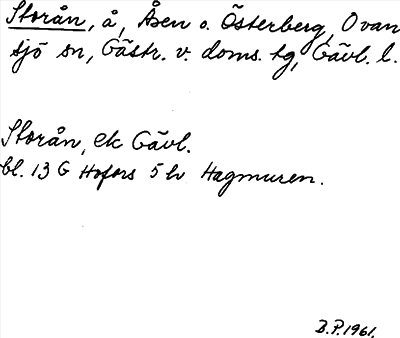 Storån, å, Åsen o. Österberg, Ovan
sjö sn, Gästr. v. doms. tg, Gävl. l.
Storån, ek Gävl.
bl. 13 G Hofors 5 h Hagmuren.
B.P. 1961.